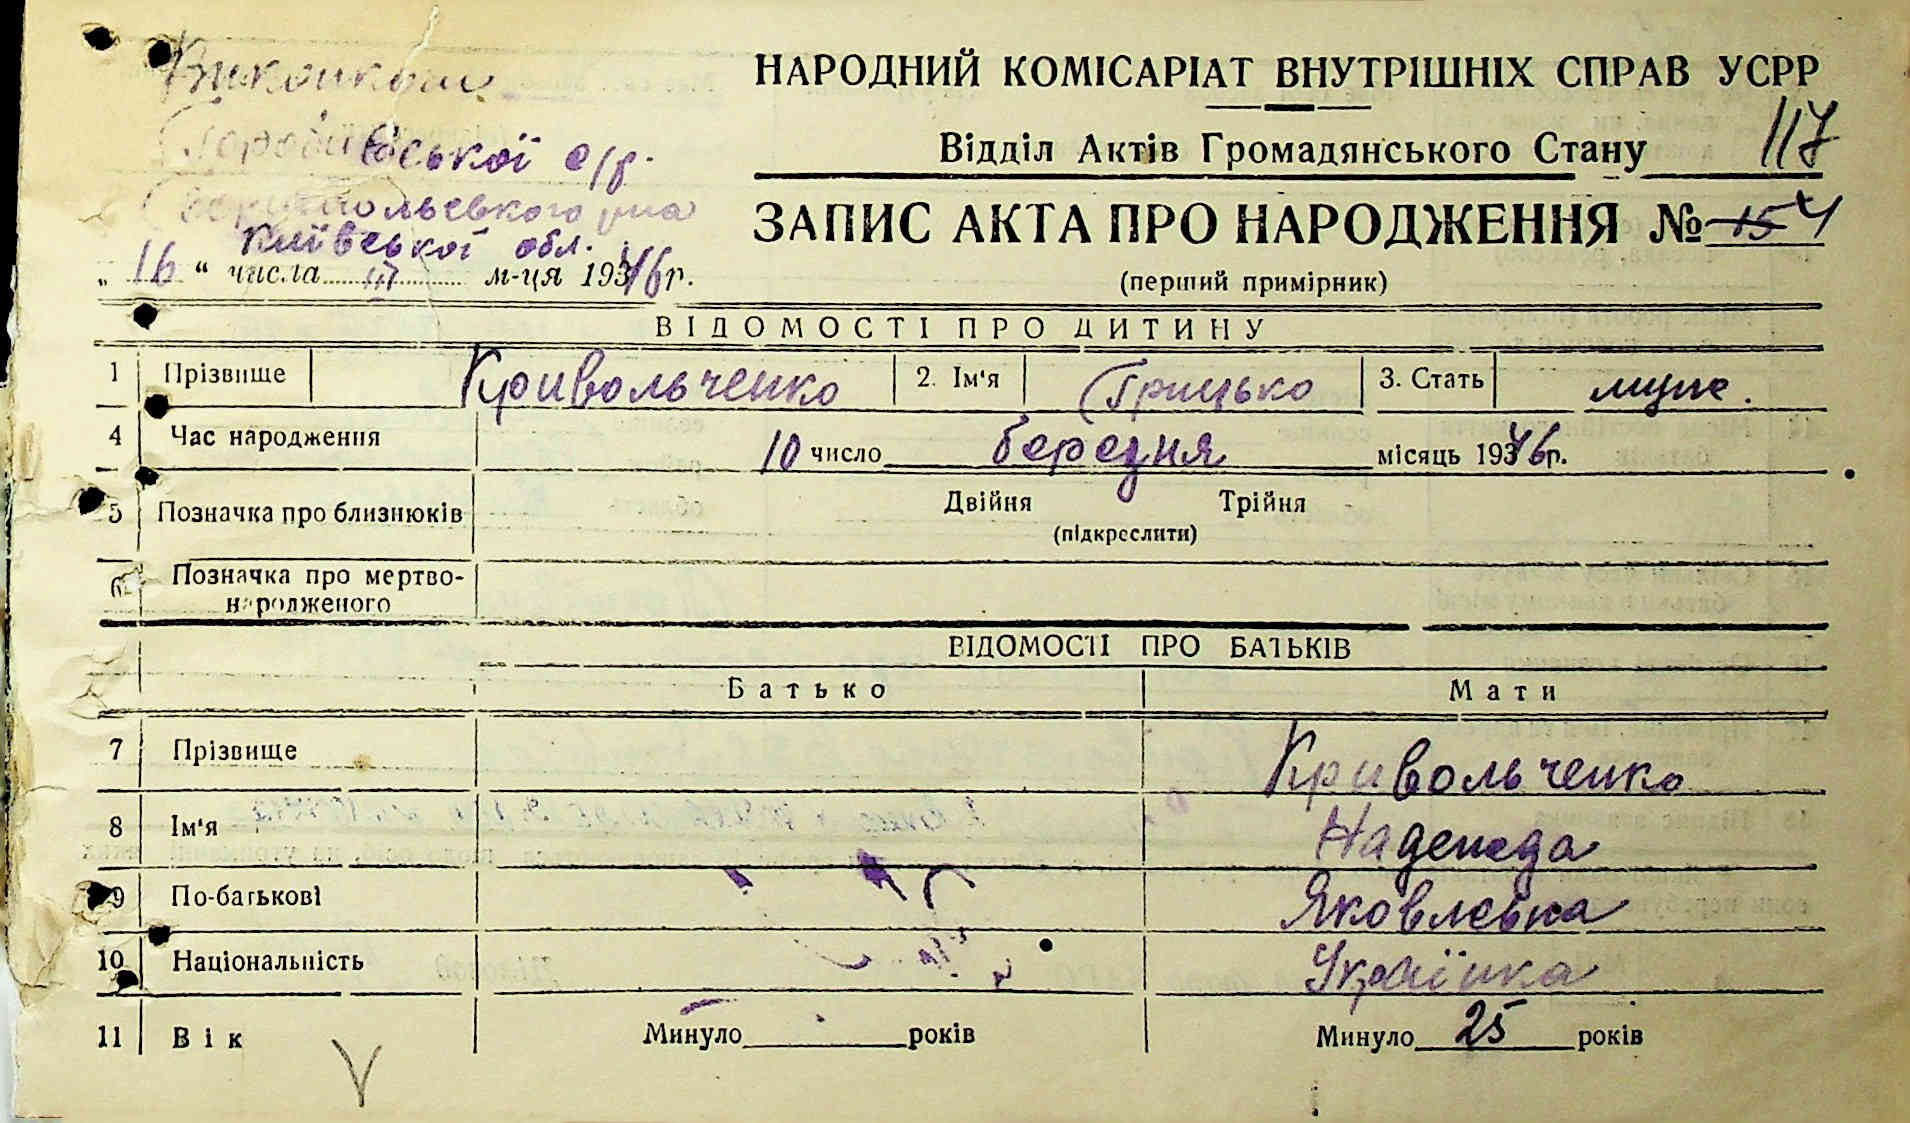 Виконком
НАРОДНИЙ КОМІСАРІАТ ВНУТРІШНІХ СПРАВ УСРР
117
Відділ Актів Громадянського Стану
ської с/р.
Бориспольського р-на
Київської обл.
ЗАПИС АКТА ПРО НАРОДЖЕННЯ № 15 4
(перший примірник)
„ 16 “ числа III м-ця 1946 р.
ВІДОМОСТІ ПРО ДИТИНУ
1 Прізвище Кривольченко 2. Ім'я Грицько 3. Стать муже.
4 Час народження 10 число березня місяць 1946 р.
5 Позначка про близнюків Двійня Трійня
(підкреслити)
6 Позначка про мертво-
народженого
ВІДОМОСТІ ПРО БАТЬКІВ
Батько Мати
7 Прізвище Кривольченко
8 Ім'я Надежда
9 По-батькові Яковлевна
10 Національність Українка
11 Вік Минуло років Минуло 25 років